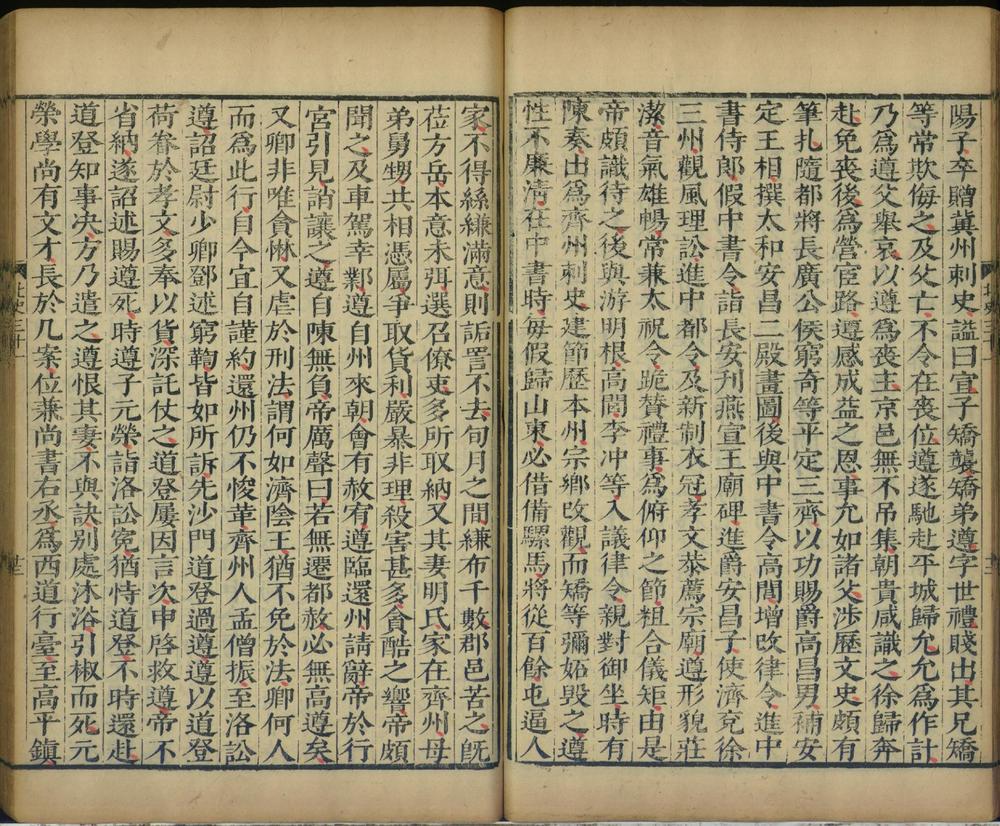 陽子卒贈冀州刺史謚曰宣子矯襲矯弟遵字世禮賤出其兄矯
等常欺侮之及父亡不令在喪位遵遂馳赴平城歸允允為作計
乃為遵父舉哀以遵為喪主京邑無不吊集朝貴咸識之徐歸奔
赴免喪後為營宦路遵感成益之恩事允如諸父涉歷文史頗有
筆扎隨都將長廣公侯窮奇等平定三齊以功賜爵高昌男補安
定王相撰太和安昌二殿畫圖後與中書令高閭增改律令進中
書侍郎假中書令詣長安刊燕宣王廟碑進爵安昌子使濟兗徐
三州觀風理訟進中都令及新制衣冠孝文恭薦宗廟遵形貌莊
潔音氣雄暢常兼太祝令跪贊禮事為俯仰之節粗合儀矩由是
帝頗識待之後與游明根高閭李冲等入議律令親對御坐時有
陳奏出為齊州刺史建節歷本州宗鄉改觀而矯等彌妬毀之遵
性不廉清在中書時每假歸山東必借備騾馬將從百餘屯逼人
家不得絲縑滿意則詬詈不去旬月之間縑布千數郡邑苦之旣
莅方岳本意未弭選召僚吏多所取納又其妻明氏家在齊州母
弟舅甥共相憑屬爭取貨利嚴暴非理殺害甚多貪酷之響帝頗
聞之及車駕幸鄴遵自州來朝會有赦宥遵臨還州請辭帝於行
宮引見誚讓之遵自陳無負帝厲聲曰若無遷都赦必無高遵矣
又卿非唯貪惏又虐於刑法謂何如濟陰王猶不免於法卿何人
而為此行自今宜自謹約還州仍不悛華齊州人孟僧振至洛訟
遵詔廷尉少卿鄧述窮鞫皆如所訴先沙門道登過遵遵以道登
荷眷於孝文多奉以貨深託仗之道登屢因言次申啓救遵帝不
省納遂詔述賜遵死時遵子元榮詣洛訟寃猶恃道登不時還赴
道登知事決方乃遣之遵恨其妻不與訣別處沐浴引椒而死元
榮學尚有文才長於几案位兼尚書右丞為西道行臺至高平鎮